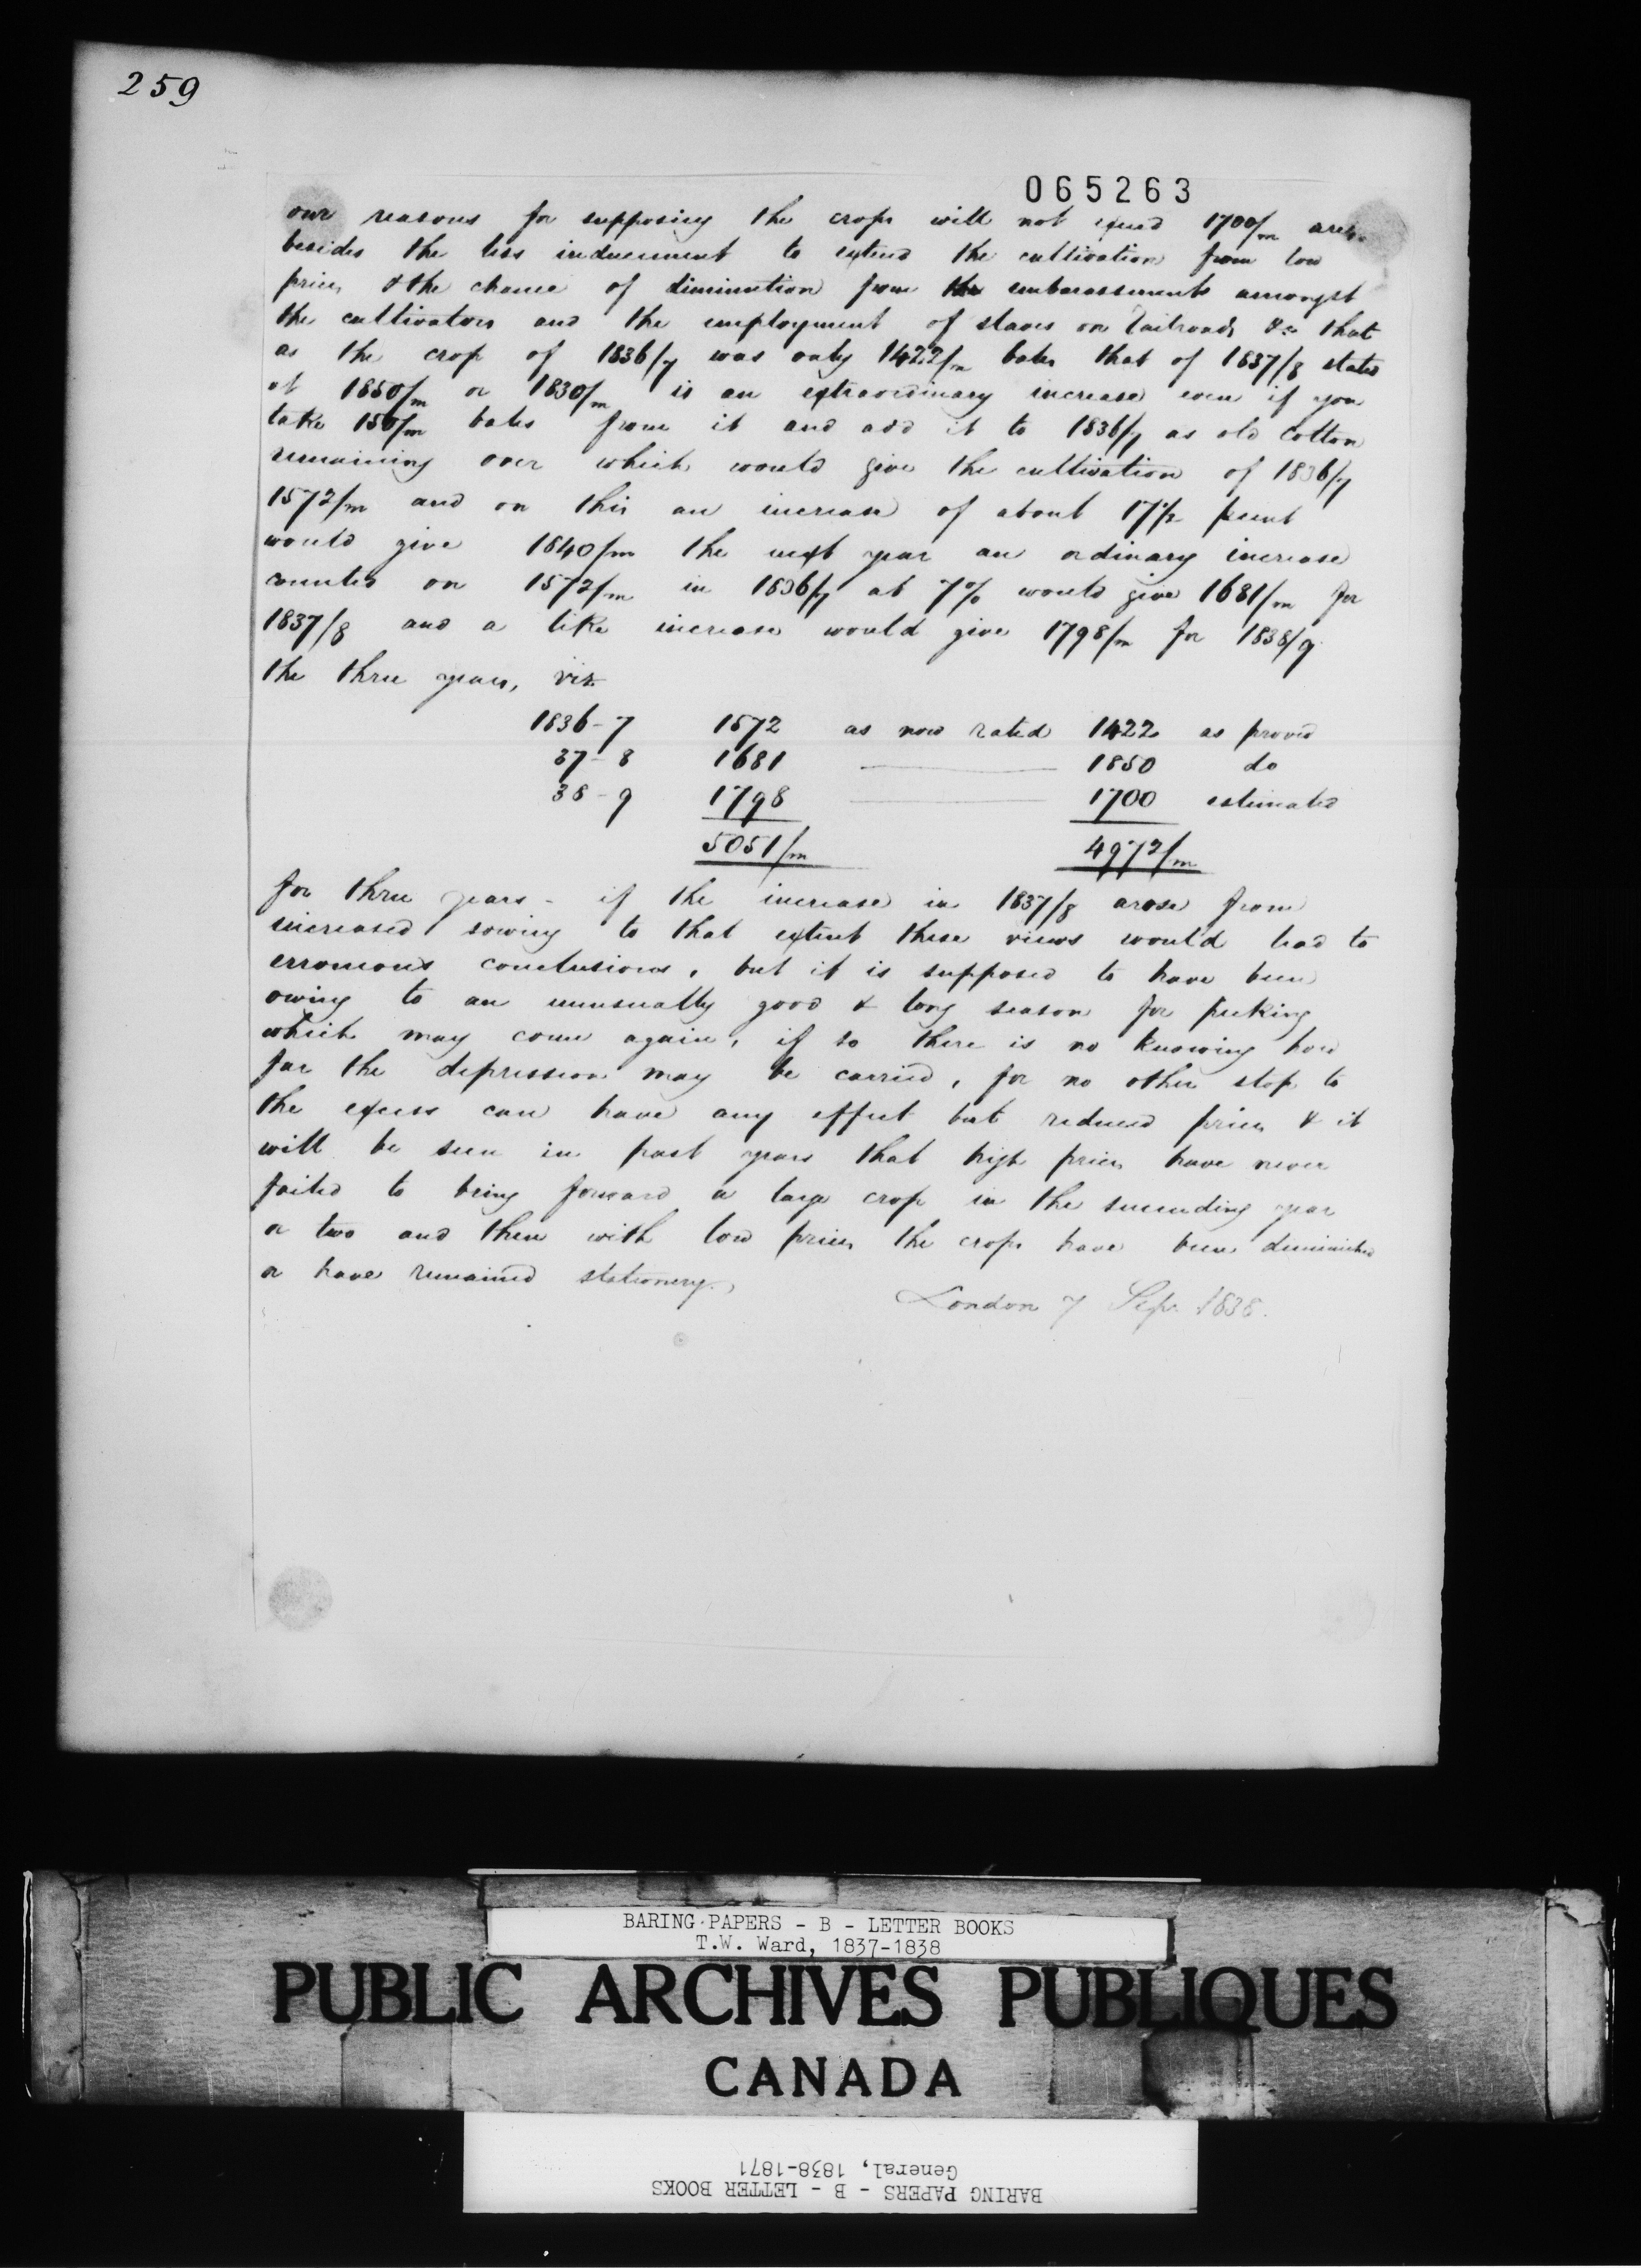 259
065263
our reasons for supposing the crops will not exceed 1700/m are,
besides the less inducement to extend the cultivation from low
prices & the chance of diminution from the embarassments amongst
the cultivators and the employment of slaves on Railroads &c that
as the crop of 1836/7 was only 1422/m bales that of 1837/8 stated
at 1850/m or 1830/m is an extraordinary increase even if you
take 150/m bales from it and add it to 1836/7 as old Cotton
remaining over which would give the cultivation of 1836/7
1572/m and on this an increase of about 17½ pcent
would give 1840/m the next year an ordinary increase
counted on 1572/m in 1836/7 at 7% would give 1681/m for
1837/8 and a like increase would give 1798/m for 1838/9
the three years, viz.
1836-7 1572 as now rated 1422 as proved
37-8 1681 1850 do
38-9 1798 1700 estimated
5051/m 4972/m
for three years - if the increase in 1837/8 arose from
increased sowing to that extent these views would lead to
erroneous conclusions, but it is supposed to have been
owing to an unusually good & long season for picking
which may come again, if so there is no knowing how
far the depression may be carried, for no other stop to
the excess can have any effect but reduced prices & it
will be seen in past years that high prices have never
failed to bring forward a large crop in the succeeding year
or two and then with low prices the crops have been diminished
or have remained stationery.
London 7 Sep. 1838.
BARING PAPERS - B - LETTER BOOKS
T.W. Ward, 1837-1838
PUBLIC ARCHIVES PUBLIQUES
CANADA
BARING PAPERS - B - LETTER BOOKS
General, 1838-1871